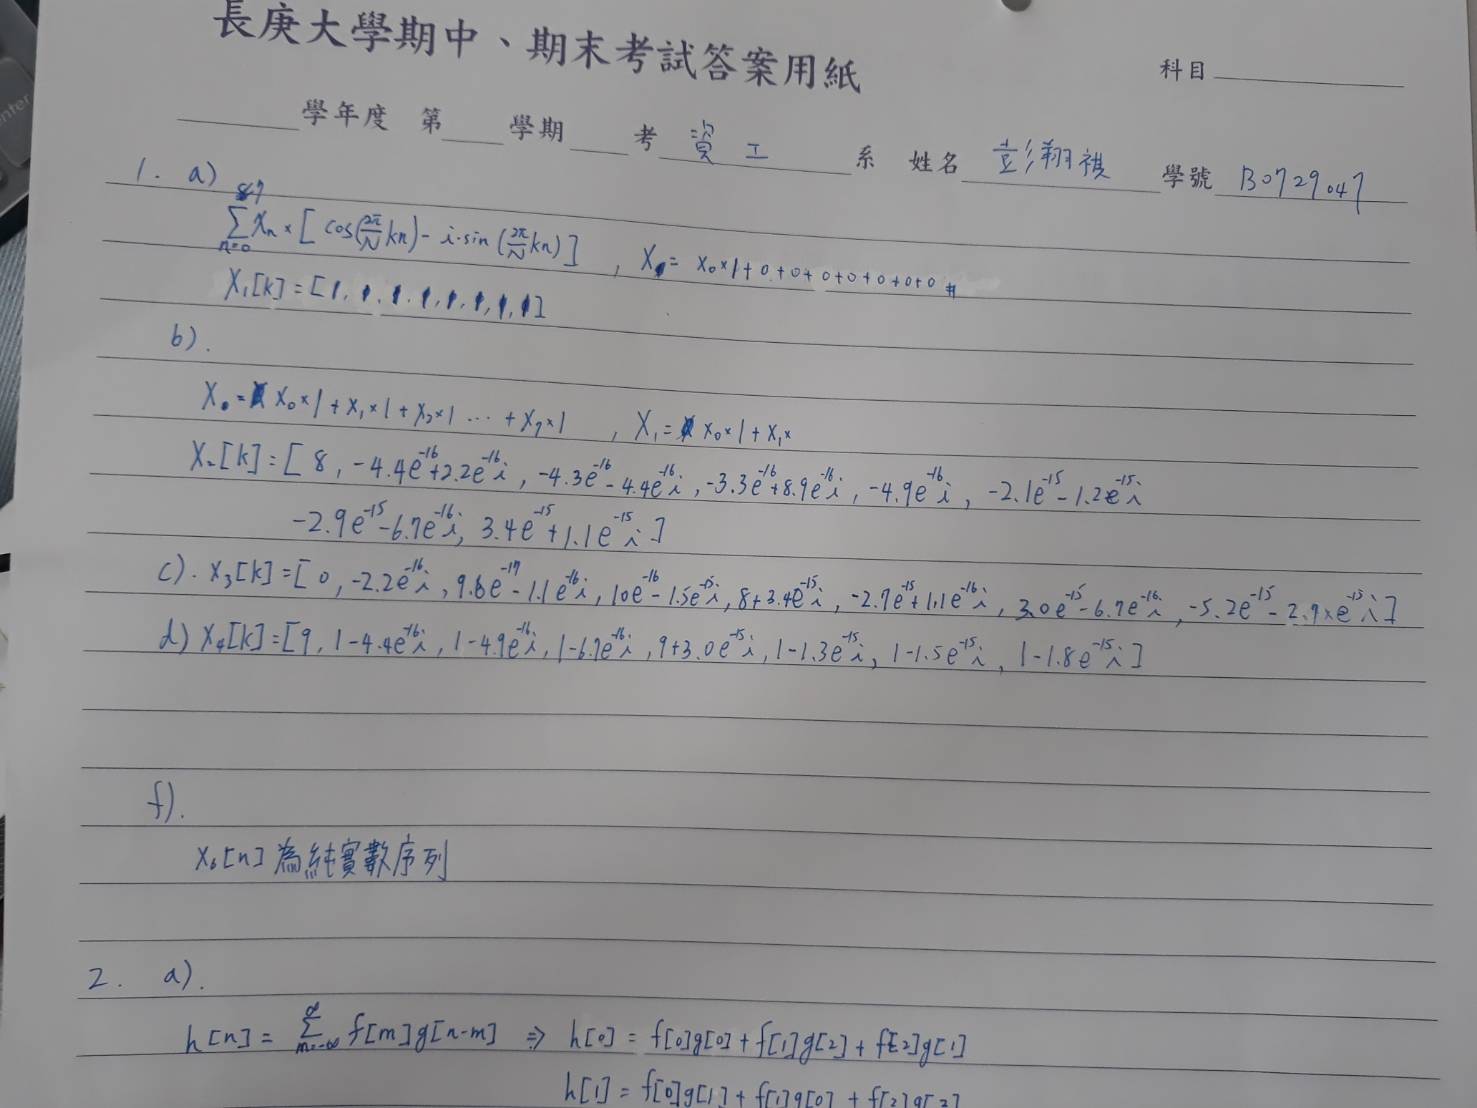 長庚大學期中、期末考試答案用紙
科目
學年度 第 學期 考 資工 系 姓名 彭翔祺 學號 B0729047
1. a)
7
∑ Xn × [ cos(2π/N kn) - i·sin (2π/N kn) ] , X = X0×1+0+0+0+0+0+0+0 #
n=0
X1[k] = [1, 1, 1, 1, 1, 1, 1, 1]
b).
X0 = X0×1 + X1×1 + X2×1 ... + X7×1 , X1 = X0×1 + X1×
X2[k] = [ 8, -4.4e^-16+2.2e^-16 i, -4.3e^-16-4.4e^-16 i, -3.3e^-16+8.9e^-16 i, -4.9e^-16 i, -2.1e^-15-1.2e^-15 i
-2.9e^-15-6.7e^-16 i, 3.4e^-15+1.1e^-15 i ]
c). X3[k] = [ 0, -2.2e^-16 i, 9.6e^-17-1.1e^-16 i, 10e^-16-1.5e^-15 i, 8+3.4e^-15 i, -2.7e^-15+1.1e^-16 i, 3.0e^-15-6.7e^-16 i, -5.2e^-15-2.9×e^-15 i ]
d) X4[k] = [9, 1-4.4e^-16 i, 1-4.9e^-16 i, 1-6.7e^-16 i, 9+3.0e^-15 i, 1-1.3e^-15 i, 1-1.5e^-15 i, 1-1.8e^-15 i ]
f).
X6[n] 為純實數序列
2. a).
h[n] = ∑ m=-∞ ∞ f[m]g[n-m] ⇒ h[0] = f[0]g[0] + f[1]g[2] + f[2]g[1]
h[1] = f[0]g[1] + f[1]g[0] + f[2]g[2]